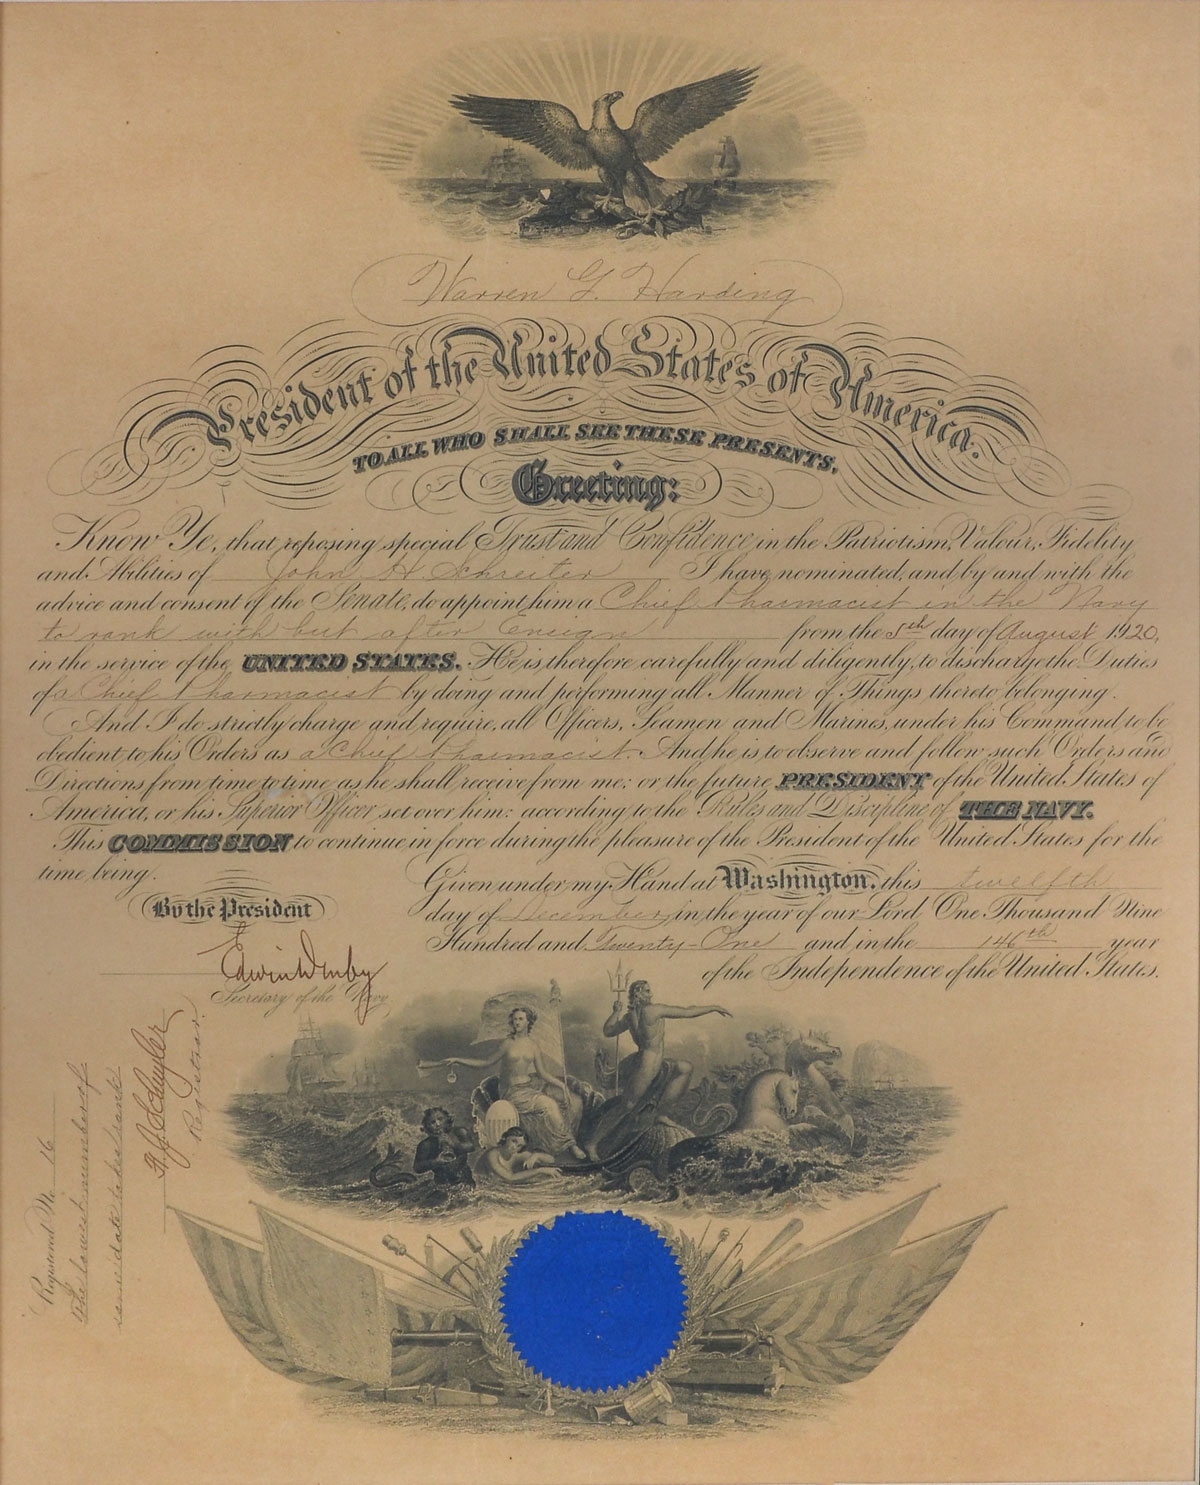 Warren G. Harding
President of the United States of America.
TO ALL WHO SHALL SEE THESE PRESENTS,
Greeting:
Know Ye, that reposing special Trust and Confidence in the Patriotism, Valour, Fidelity
and Abilities of John H. Schreiter I have nominated, and by and with the
advice and consent of the Senate, do appoint him a Chief Pharmacist in the Navy
to rank with but after Ensign from the 5th day of August 1920,
in the service of the UNITED STATES. He is therefore carefully and diligently to discharge the Duties
of a Chief Pharmacist by doing and performing all Manner of Things thereto belonging.
And I do strictly charge and require all Officers, Seamen and Marines, under his Command to be
obedient to his Orders as a Chief Pharmacist. And he is to observe and follow such Orders and
Directions from time to time as he shall receive from me; or the future PRESIDENT of the United States of
America, or his Superior Officer set over him; according to the Rules and Discipline of THE NAVY.
This COMMISSION to continue in force during the pleasure of the President of the United States for the
time being.
Given under my Hand at Washington, this twelfth
day of December, in the year of our Lord One Thousand Nine
Hundred and Twenty-One and in the 146th year
of the Independence of the United States.
By the President
Edwin Denby
Secretary of the Navy
Registered No. 16
The lowest number of
same date takes rank
Registrar.